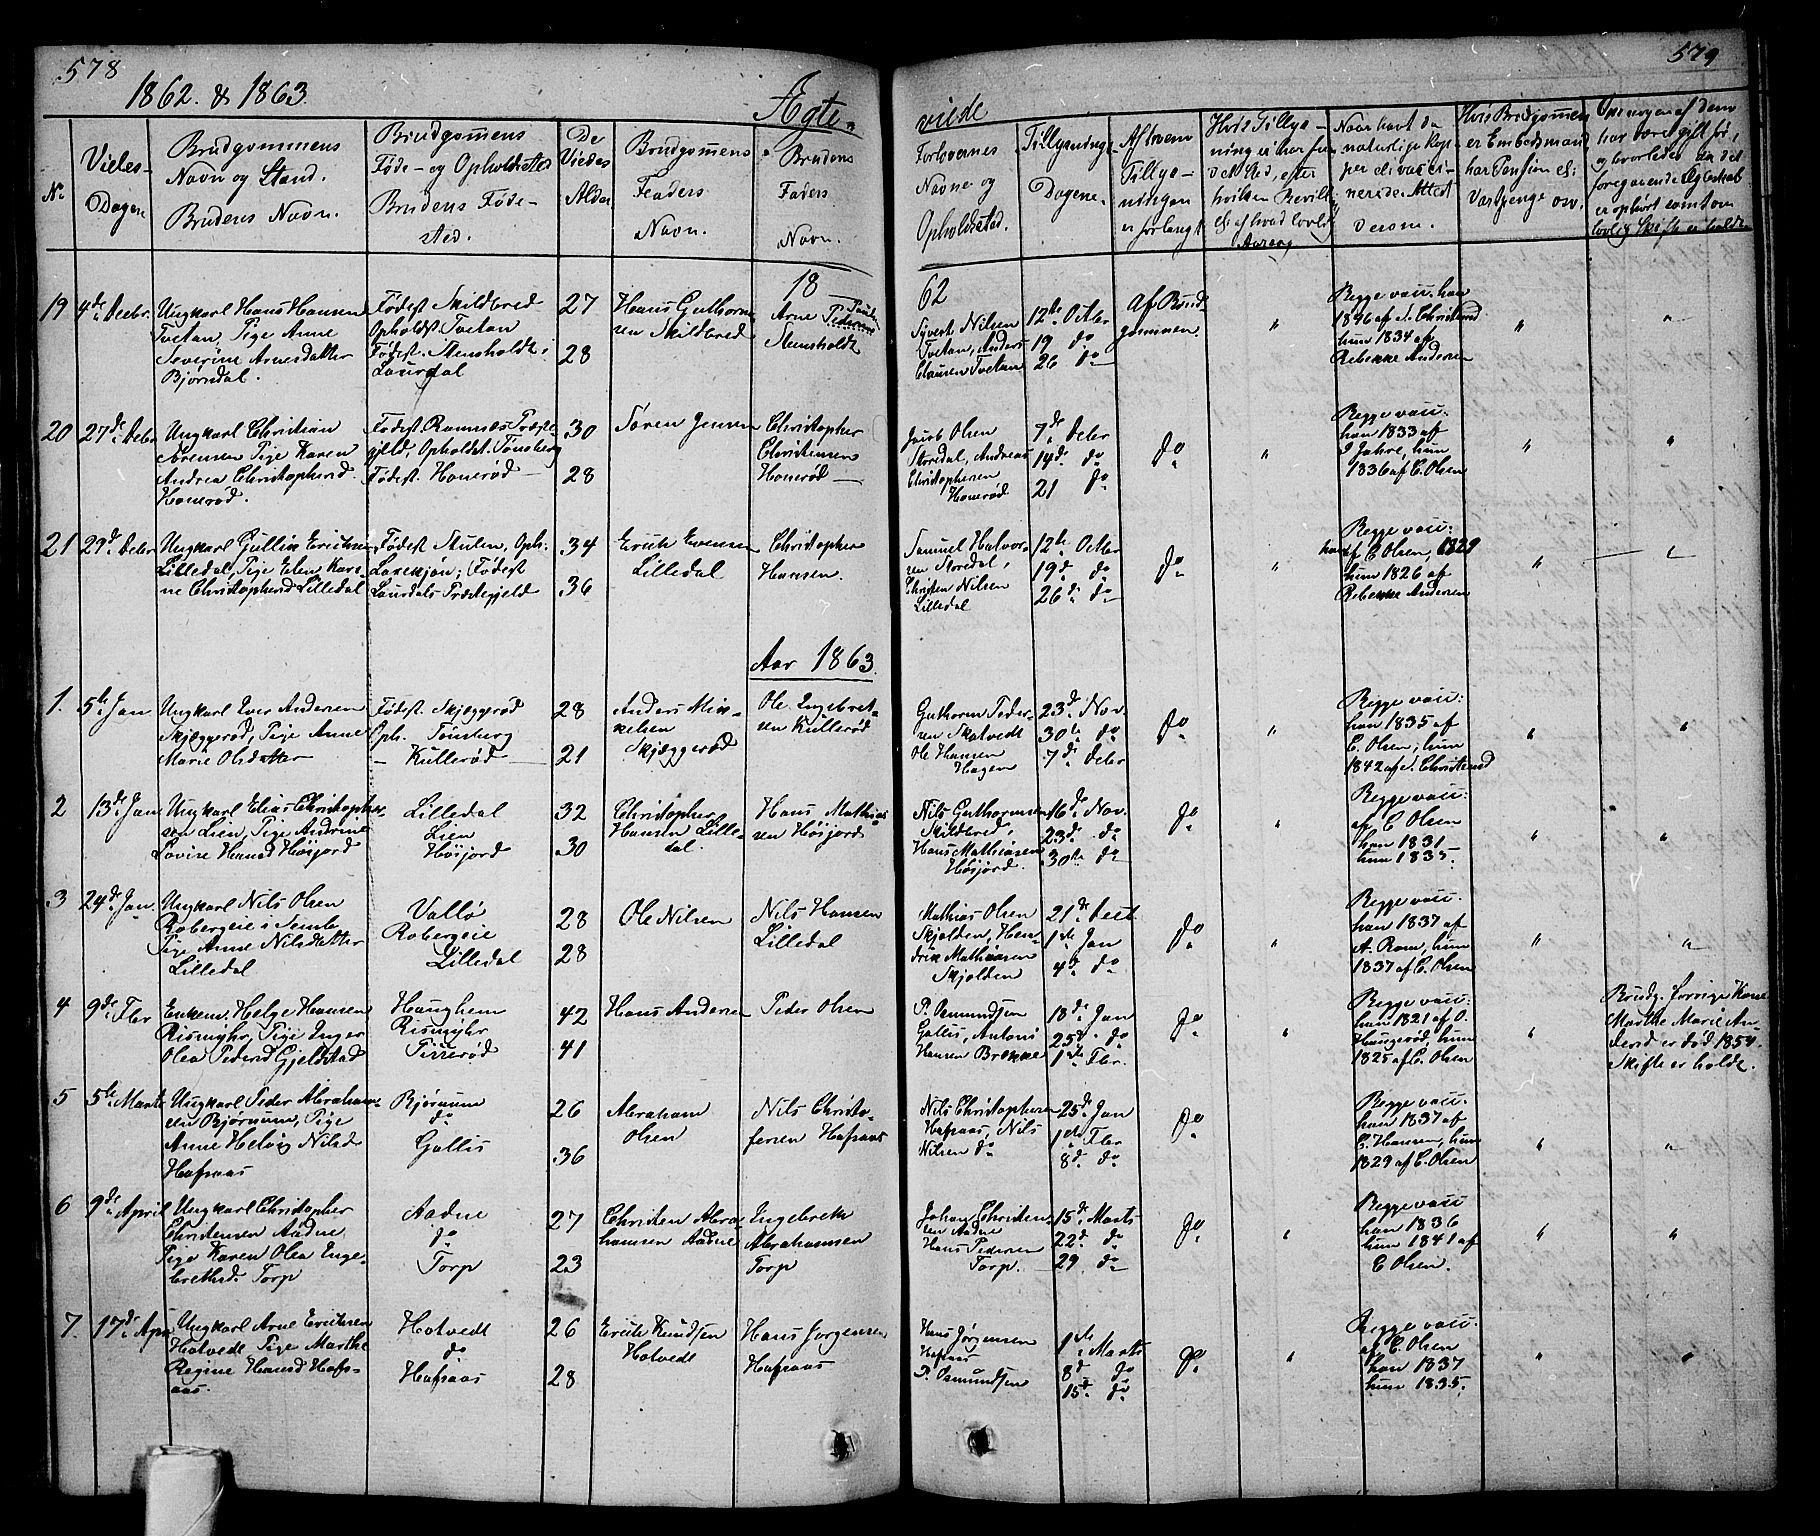 578
1862. & 1863.
Ægte-
viede
579
No
Vielses-
Dagene
Brudgommens
Navn og Stand.
Brudens Navn.
Brudgommens
Føde- og Opholdssted
Brudens Føde-
sted.
De
Viedes
Alder
Brudgommens
Faders
Navn.
Brudens
Faders
Navn.
Forlovernes
Navne og
Opholdssted.
Tillysnings-
Dagene.
Af hvem
Tillys-
ningen
er forlangt
1862
19
4de Decbr.
Ungkarl Hans Hansen
Tvetan, Pige Anne
Severine Arnesdatter
Bjørndal.
Fødest. Skildbred
Opholdst. Tvetan
Fødest. Stensholdt i
Laurdal
27
28
Hans Guthorm-
sen Skildbred
Arne
Stensholdt
Sivert Nilsen
Tvetan, Anders
Clausen Tvetan
12te Octbr
19 do
26 do
Af Brud-
gommen.
Begge vacc. han
1846 af J. Christensd
hun 1834 af
Rebekke Andersen
20
27de Decbr
Ungkarl Christian
Sørensen Pige Karen
Andrea Christophersd
Honerød.
Fødest. Ramnæs Præste-
gjeld, Opholdst. Tønsberg
Fødest. Honerød
30
28
Søren Jensen
Christopher
Christensen
Honerød
Jacob Olsen
Storedal, Andreas
Christophersen
Honerød
7de Decbr
14de do
21 do
do
Begge vacc.
han 1833 af
J Jahre, hun
1836 af C. Olsen
21
29de Decbr
Ungkarl Gullik Erichsen
Lilledal, Pige Elen Kari-
ne Christophersd Lilledal
34
36
Erich Evensen
Lilledal
Christopher
Hansen.
Samuel Halvor-
sen Storedal,
Christen Nilsen
Lilledal
12te Octbr
19de do
26de do
do
Begge vacc.
han af C. Olsen, 1829
hun 1826 af
Rebekke Andersen
Aar 1863.
1.
5te Jan
Ungkarl Iver Andersen
Skjæggerød, Pige Anne
Marie Olsdatter
Fødest. Skjæggerød
Oph. Tønsberg
– Kullerød
28
21
Anders Mik-
kelsen
Skjæggerød
Ole Ingebret-
sen Kullerød
Guthorm Peder-
sen Skatvedt
Ole Hansen
Hagen
23de Nov.
30te do
7de Decbr
do
Begge vacc:
han 1835 af
C. Olsen, hun
1842 af J. Christensd
2
13de Jan
Ungkarl Elias Christopher-
sen Lien, Pige Andrine
Lovise Hansd Høijord
Lilledal
Lien
Høijord
32
30
Christopher
Hansen Lille-
dal.
Hans Mathias-
sen Høijord
Nils Guthormsen
Skildbred,
Hans Mathiasen
Høijord.
16de Nov.
23de do
30te do
do
Begge vacc:
af C. Olsen
han 1831
hun 1835.
3
24de Jan.
Ungkarl Nils Olsen
Robergeie i Semb
Pige Anne Nilsdatter
Lilledal
Vallø
Robergeie
Lilledal
28
28
Ole Nilsen
Nils Hansen
Lilledal
Mathias Olsen
Skjolden, Hen-
drik Mathiasen
Skjolden
21de Decb
1ste Jan
4de do
do
Begge vacc.
han 1837 af
A. Rom, hun
1837 af C. Olsen
4
9de Febr
Enkem. Helge Hansen
Rismyhr, Pige Inger
Olea Pedersd Gjelstad
Haughem
Rismyhr
42
41
Hans Andersen
Peder Olsen
P. Osmundsen
Gallis, Antoni
Hansen Brekke
18de Jan
25de do
1ste Febr.
do
Begge vacc:
han 1821 af O.
Haugerød, hun
1825 af C. Olsen
Brudg. forrige Kone
Marthe Marie An-
dersd er død 1854.
Skifte er holdt.
5
5te Marts
Ungkarl Peder Abraham-
sen Bjørnum, Pige
Anne Helvig Nilsd
Hafsaas
Bjørnum
do
Gallis
26
36
Abraham
Olsen
Nils Christo-
fersen Hafsaas
Nils Christophersen
Hafsaas, Nils
Nilsen do
25de Jan
1ste Febr
8de do
do
Begge vacc:
han 1837 af
C. Hansen, hun
1829 af C. Olsen
6
9de April
Ungkarl Christopher
Christensen Aadne
Pige Karen Olea Inge-
brethsd. Torp
Aadne
do
Torp
27
23
Christen Abra-
hamsen Aadne
Ingebreth
Abrahamsen
Torp
Johan Christen-
sen Aadne
Hans Pedersen
Torp.
15de Marts
22de do
29 do
do
Begge vacc
han 1836
hun 1841 af
C Olsen.
7.
17de Apr.
Ungkarl Arne Erichsen
Hotvedt Pige Marthe
Regine Hansd Hafs-
aas.
Hotvedt
do
Hafsaas
26
28
Erich Knudsen
Hotvedt
Hans Jørgensen
Hafsaas
Hans Jørgensen
Hafsaas
P. Osmundsen
1ste Marts
8de do
15de do
do
Begge vacc.
af C. Olsen
han 1837
hun 1835.